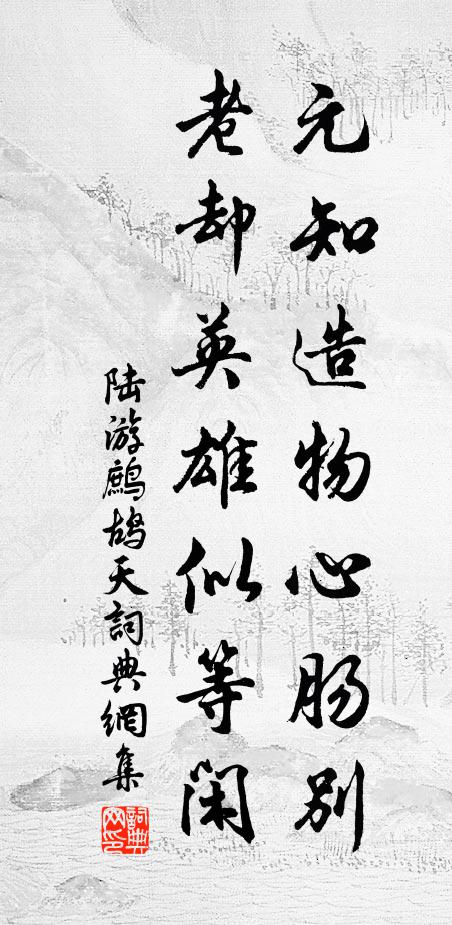 元知造物心肠别
老却英雄似等閑
陆游鹧鸪天詞典網集
詞典網印